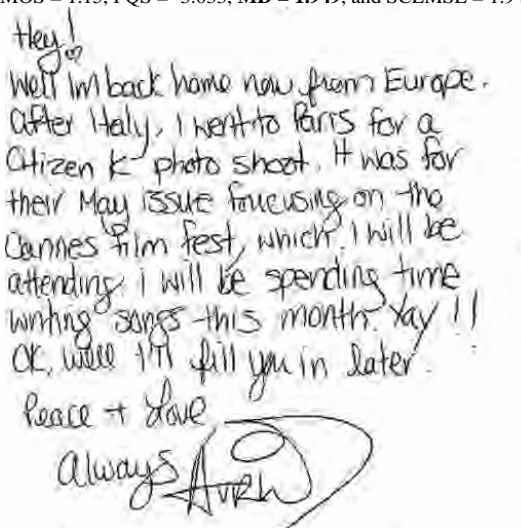 Hey!
Well Im back home now from Europe.
After Italy, I went to Paris for a
Citizen K photo shoot. It was for
their May issue foucusing on the
Cannes film fest, which I will be
attending. i will be spending time
writing songs this month. Yay !!
OK, well I'll fill you in later.
Peace + Love
always Avril